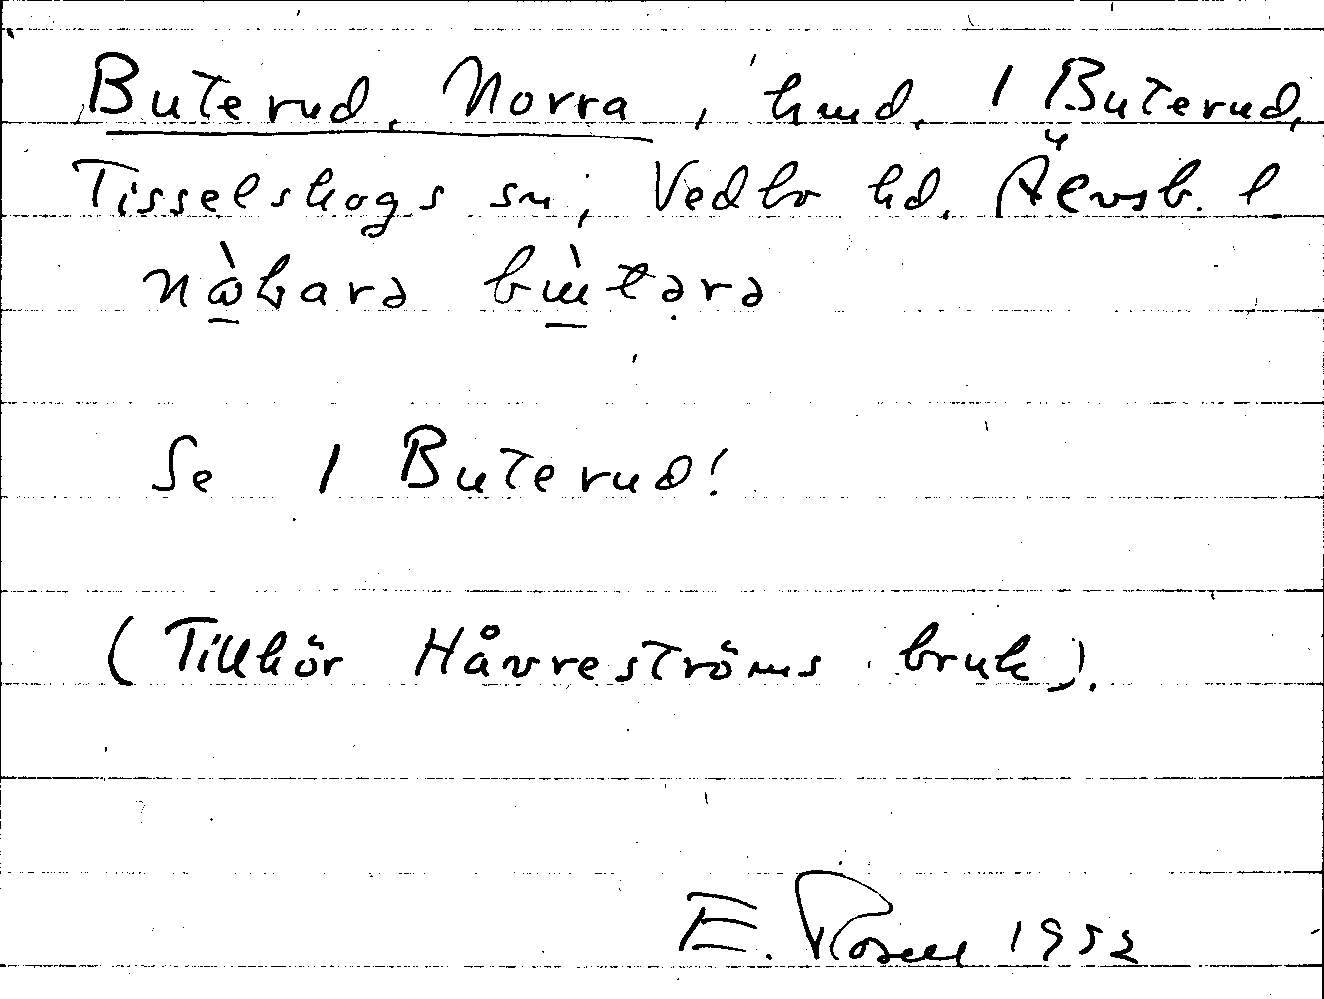 Buterud, Norra, hmd. 1 Buterud,
Tisselskogs sn, Vedbo hd. Älvsb. l
nɷ̀barə bùtərə
Se 1 Buterud!
(Tillhör Håvreströms bruk).
E. Rosell 1952